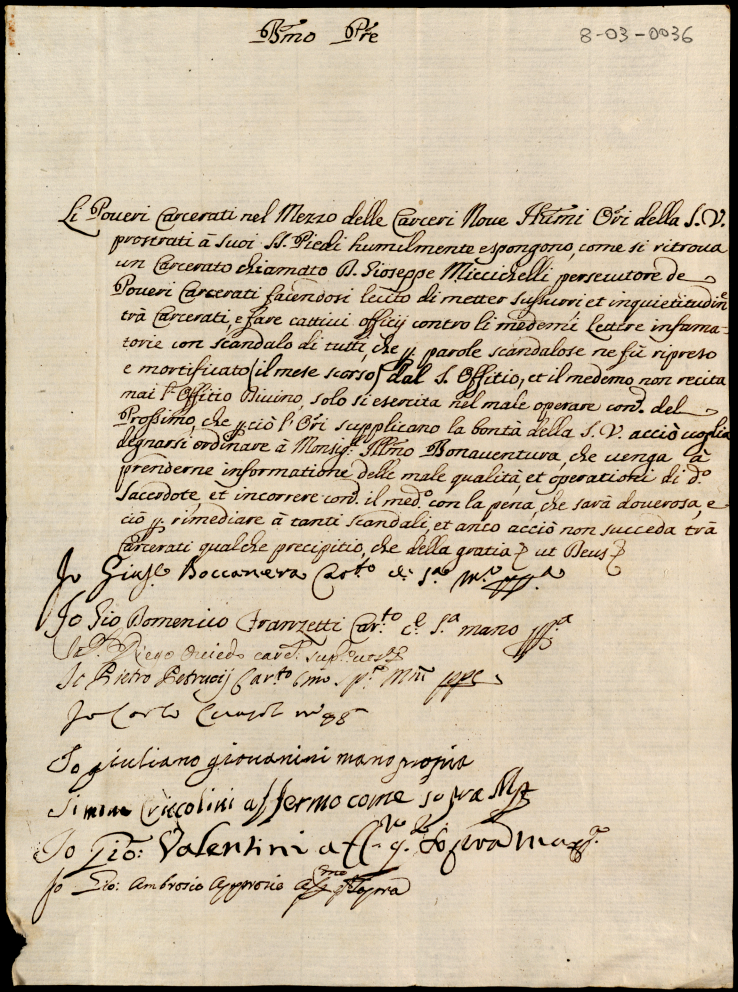 Bmo Pre
8-03-0036
Li Poueri Carcerati nel Mezzo delle Carceri Noue Humi Ori della S. V.
prostrati à suoi SS. Piedi humilmente espongono, come si ritroua
un Carcerato chiamato D. Gioseppe Miccichelli persecutore de
Poueri Carcerati facendosi lecito di metter sussurri et inquietitudin
trà Carcerati, e fare cattiui officij contro li medemi Lettere infama-
torie con scandalo di tutti, che p. parole scandalose ne fù ripreso
e mortificato (il mese scorso) dal S. Offitio, et il medemo non recita
mai l'Offitio Diuino, solo si esercita nel male operare con. del
Prossimo, che p. ciò l'Ori supplicano la bontà della S. V. acciò uoglia
degnarsi ordinare à Monsig. Illmo Bonauentura, che uenga à
prenderne informatione delle male qualità, et operationi di do.
Sacerdote, et incorrere con. il medo. con la pena, che sarà douerosa, e
ciò p. rimediare à tanti scandali, et anco acciò non succeda trà
Carcerati qualche precipitio, che della gratia ut Deus
Io Gius.e Boccanera Car.to
Io Gio Domenico Franzetti Car.to c.e S.a mano pp.a
Diego Ouiedo
Io Pietro Petrucij Car.to
Io Carlo
Io giuliano giouanini mano propia
Simone Criccolini affermo come sopra
Io Gio: Valentini aff. q. sopra
Io Gio: Ambrosio Approsio aff.mo q. sopra